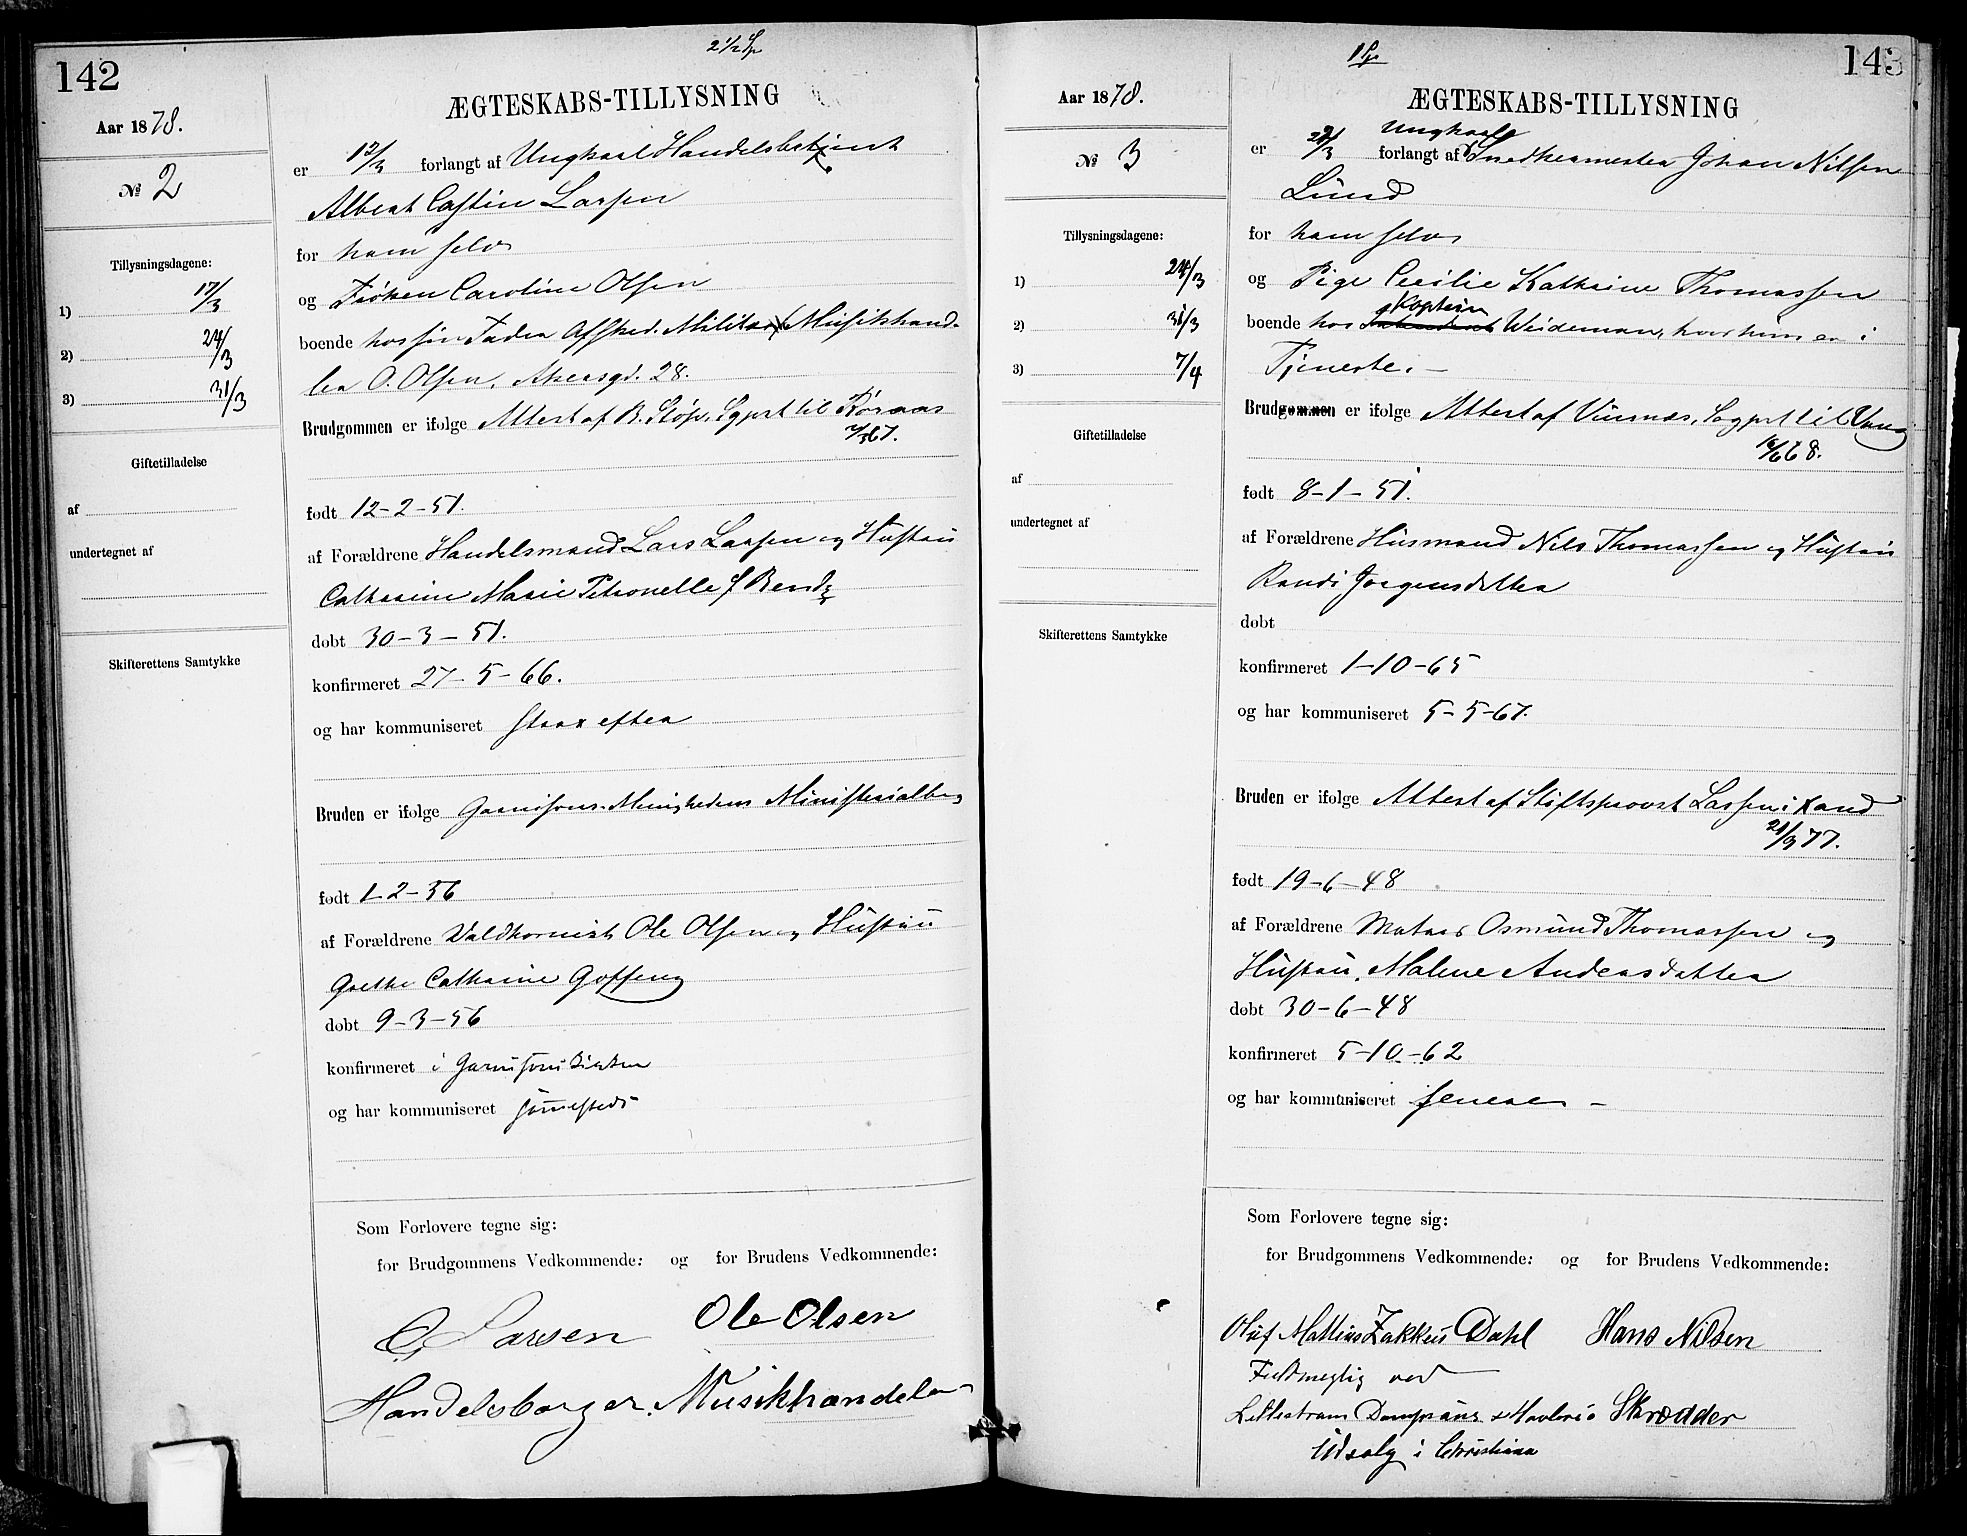 142
2 1/2 Sp
Aar 1878.
№ 2
Tillysningsdagene:
1) 17/3
2) 24/3
3) 31/3
Giftetilladelse
af
undertegnet af
Skifterettens Samtykke
ÆGTESKABS-TILLYSNING
er 12/3 forlangt af Ungkarl Handelsbetjent
Albert Castin Larsen
for ham selv
og Frøken Caroline Olsen
boende hos sin Fader Afsked. Militær Musikhand-
ler O. Olsen, Akersgd. 28.
Brudgommen er ifølge Attest af B. Støp, Sgprt til Røraas
67.
født 12-2-51.
af Forældrene Handelsmand Lars Larsen og Hustru
Catharine Marie Petronelle f Rentz
døbt 30-3-51.
konfirmeret 27-5-66.
og har kommuniseret strax efter
Bruden er ifølge Garnisons-Menighedens Ministerialbog
født 1-2-56
af Forældrene Valdhornist Ole Olsen og Hustru
Grethe Cathrine Goffeng
døbt 9-3-56
konfirmeret i Garnisons Kirken
og har kommuniseret sammesteds
Som Forlovere tegne sig:
for Brudgommens Vedkommende: og for Brudens Vedkommende:
Larsen Ole Olsen
Handelsborger. Musikhandeler
143
1 Sp
Aar 1878.
№ 3
Tillysningsdagene:
1) 24/3
2) 31/3
3) 7/4
Giftetilladelse
af
undertegnet af
Skifterettens Samtykke
ÆGTESKABS-TILLYSNING
Ungkarl
er 21/3 forlangt af Snedkermester Johan Nilsen
Lund
for ham selv
og Pige Cecilie Kathrine Thomassen
Kaptein
boende hos Weideman, hvor hun er i
Tjeneste. –
Brudgommen er ifølge Attest af Vinsnes, Sogprt til Vang
16/6 68.
født 8-1-51.
af Forældrene Husmand Nils Thomassen og Hustru
Randi Jørgensdatter
døbt
konfirmeret 1-10-65
og har kommuniseret 5-5-67.
Bruden er ifølge Attest af Stiftsprovst Lassen i Xsand
21/9 77.
født 19-6-48
af Forældrene Matros Osmund Thomassen og
Hustru, Malene Andersdatter
døbt 30-6-48
konfirmeret 5-10-62
og har kommuniseret senere –
Som Forlovere tegne sig:
for Brudgommens Vedkommende: og for Brudens Vedkommende:
Oluf Mattius Zakkeus Dahl Hans Nilsen
Fuldmegtig ved
Lillestrøm Dampsaug & Høvleris Skrædder
Udsalg i Christiania